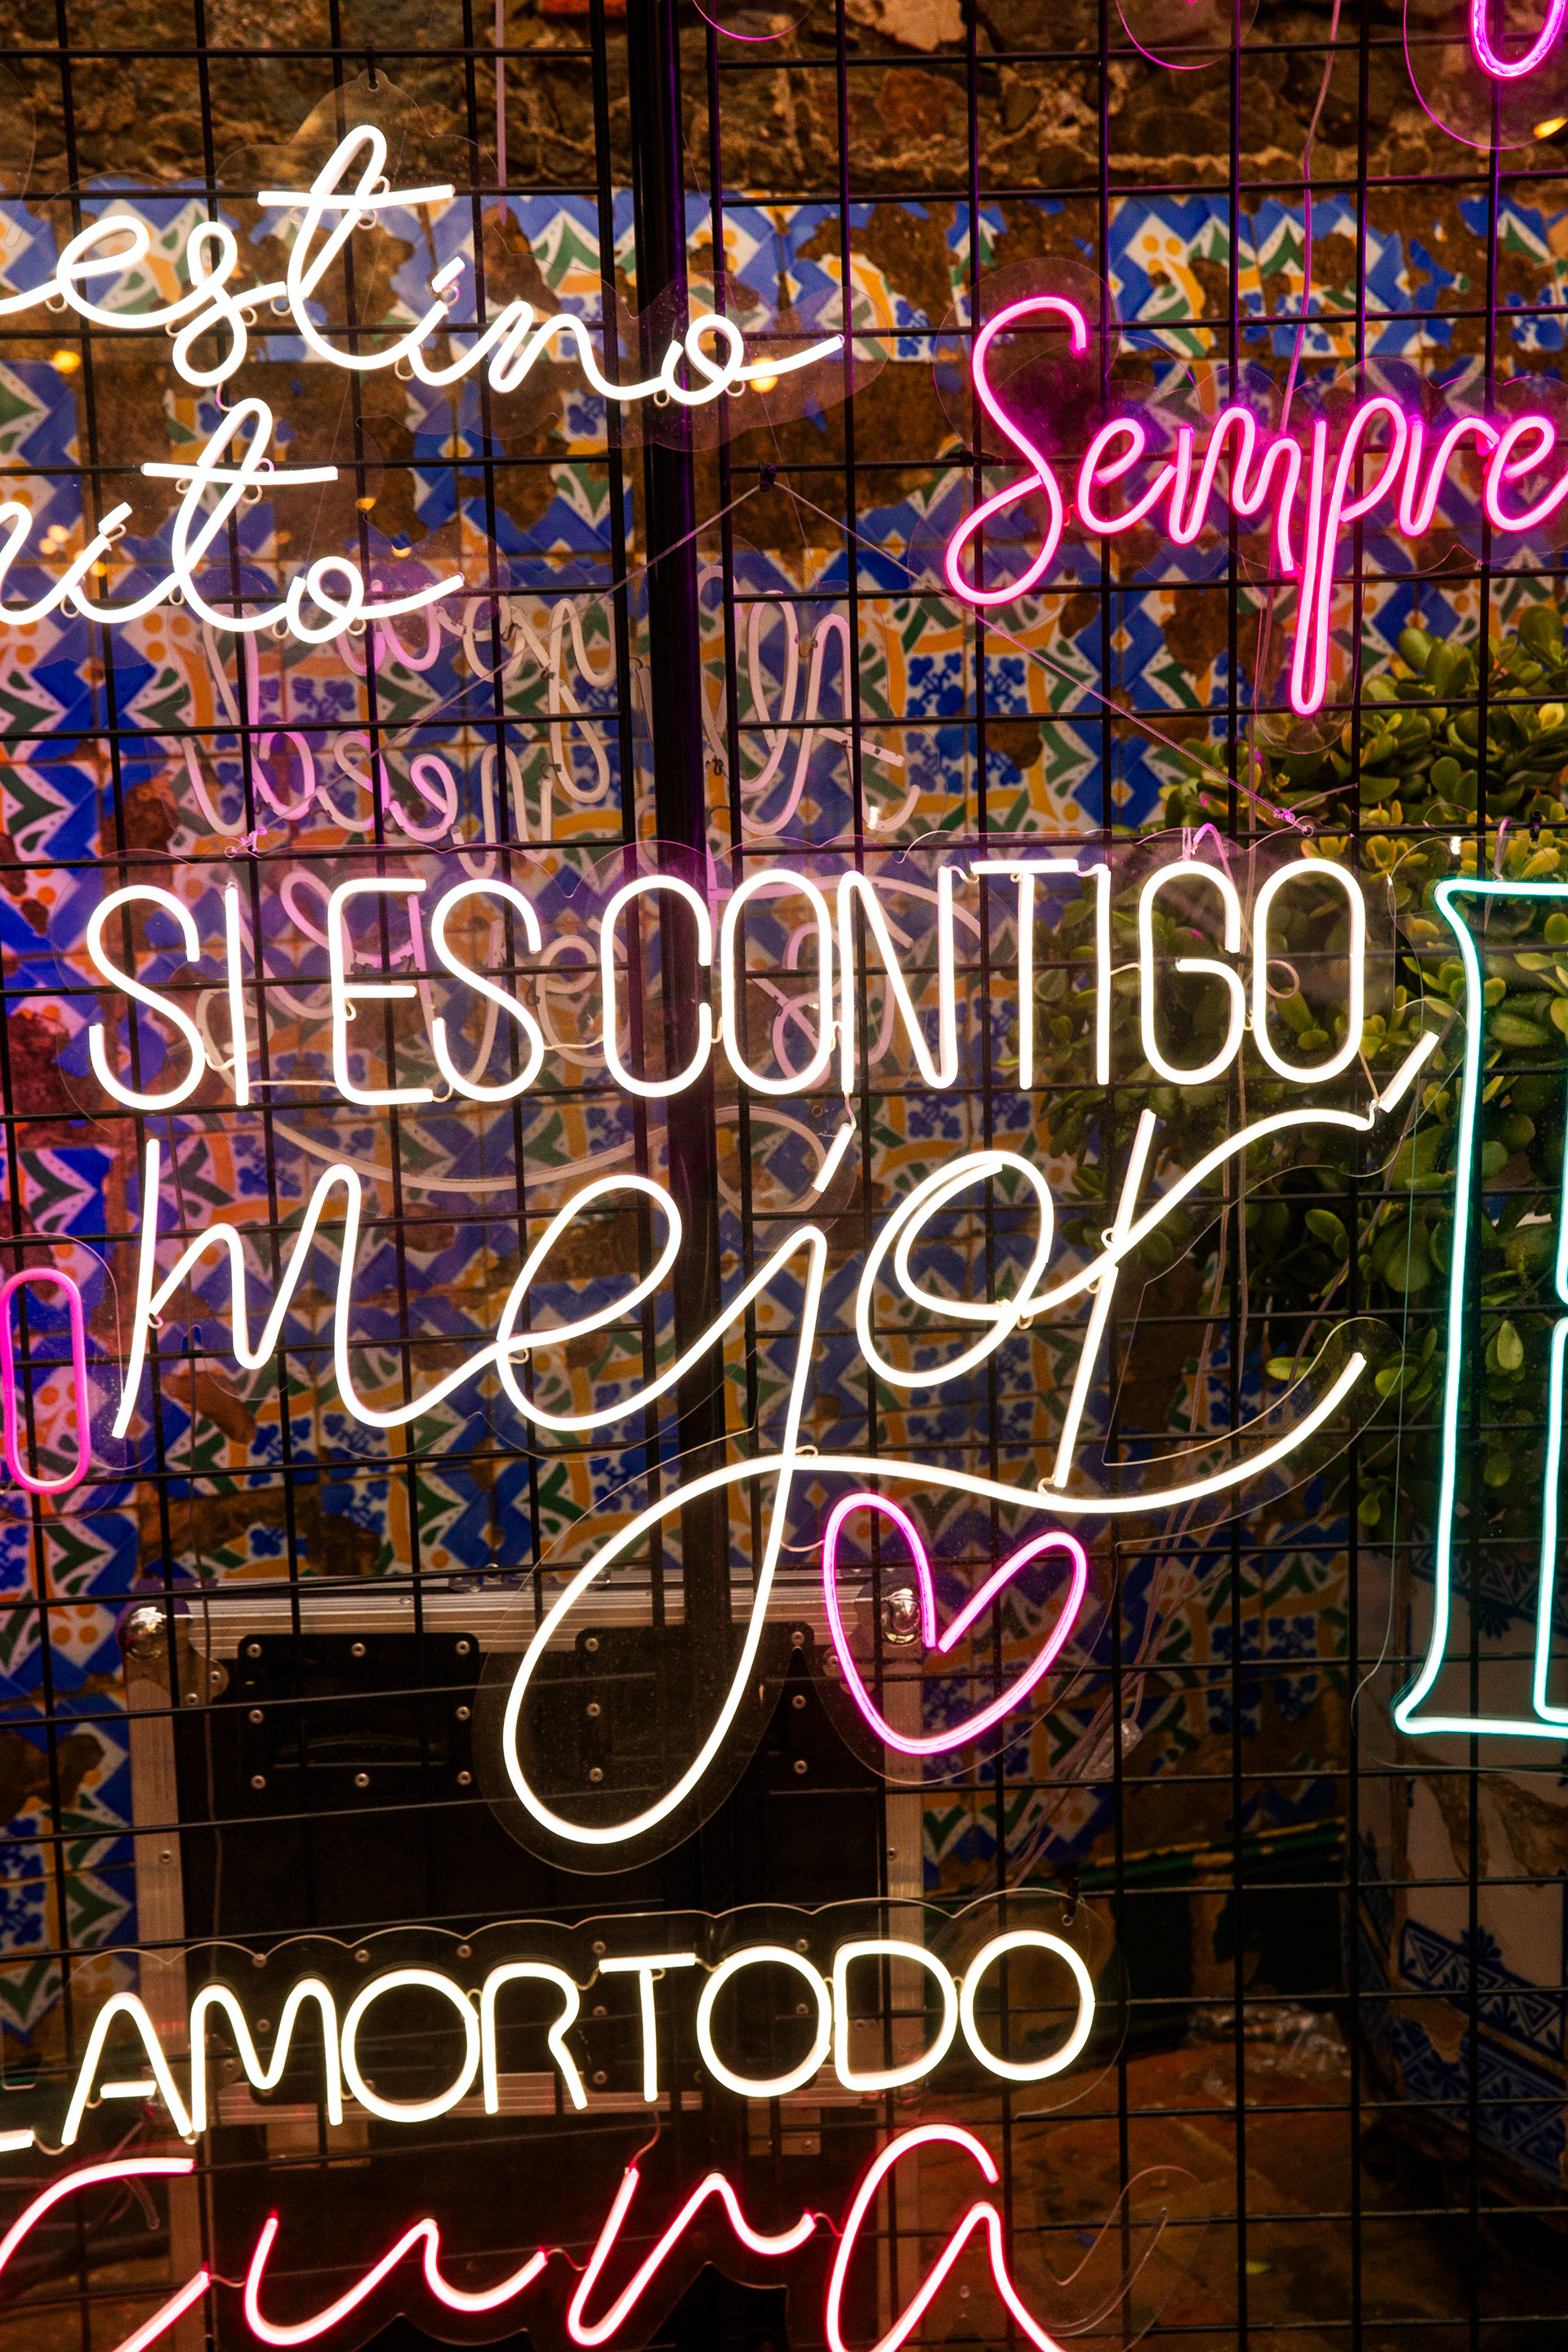 estino
ito
Sempre
SI ES CONTIGO
mejor
L AMOR TODO
Cura